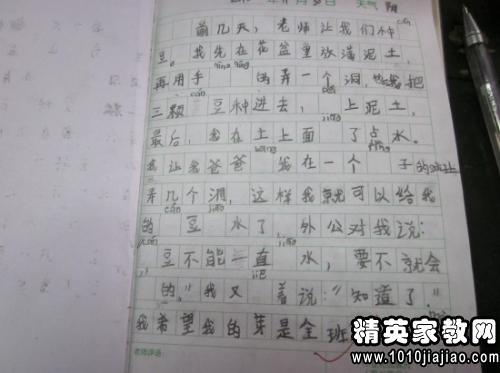 天气 阴
前几天，老师让我们种
cán
豆。我先在花盆里放满泥土，
qīng qīng
再用手 的弄一个洞，把
cán
三颗 豆种进去， 上泥土，
jiāo
最后，我在土上面 了点水。
我让我爸爸 我在一个 子的 上
弄几个洞，这样我就可以给我
cán jiāo
的 豆 水了。外公对我说：
jiāo
豆不能一直 水，要不就会
的，"我又 着说："知道了。"
我希望我的芽是全班
老师评语
精英家教网
www.1010jiajiao.com